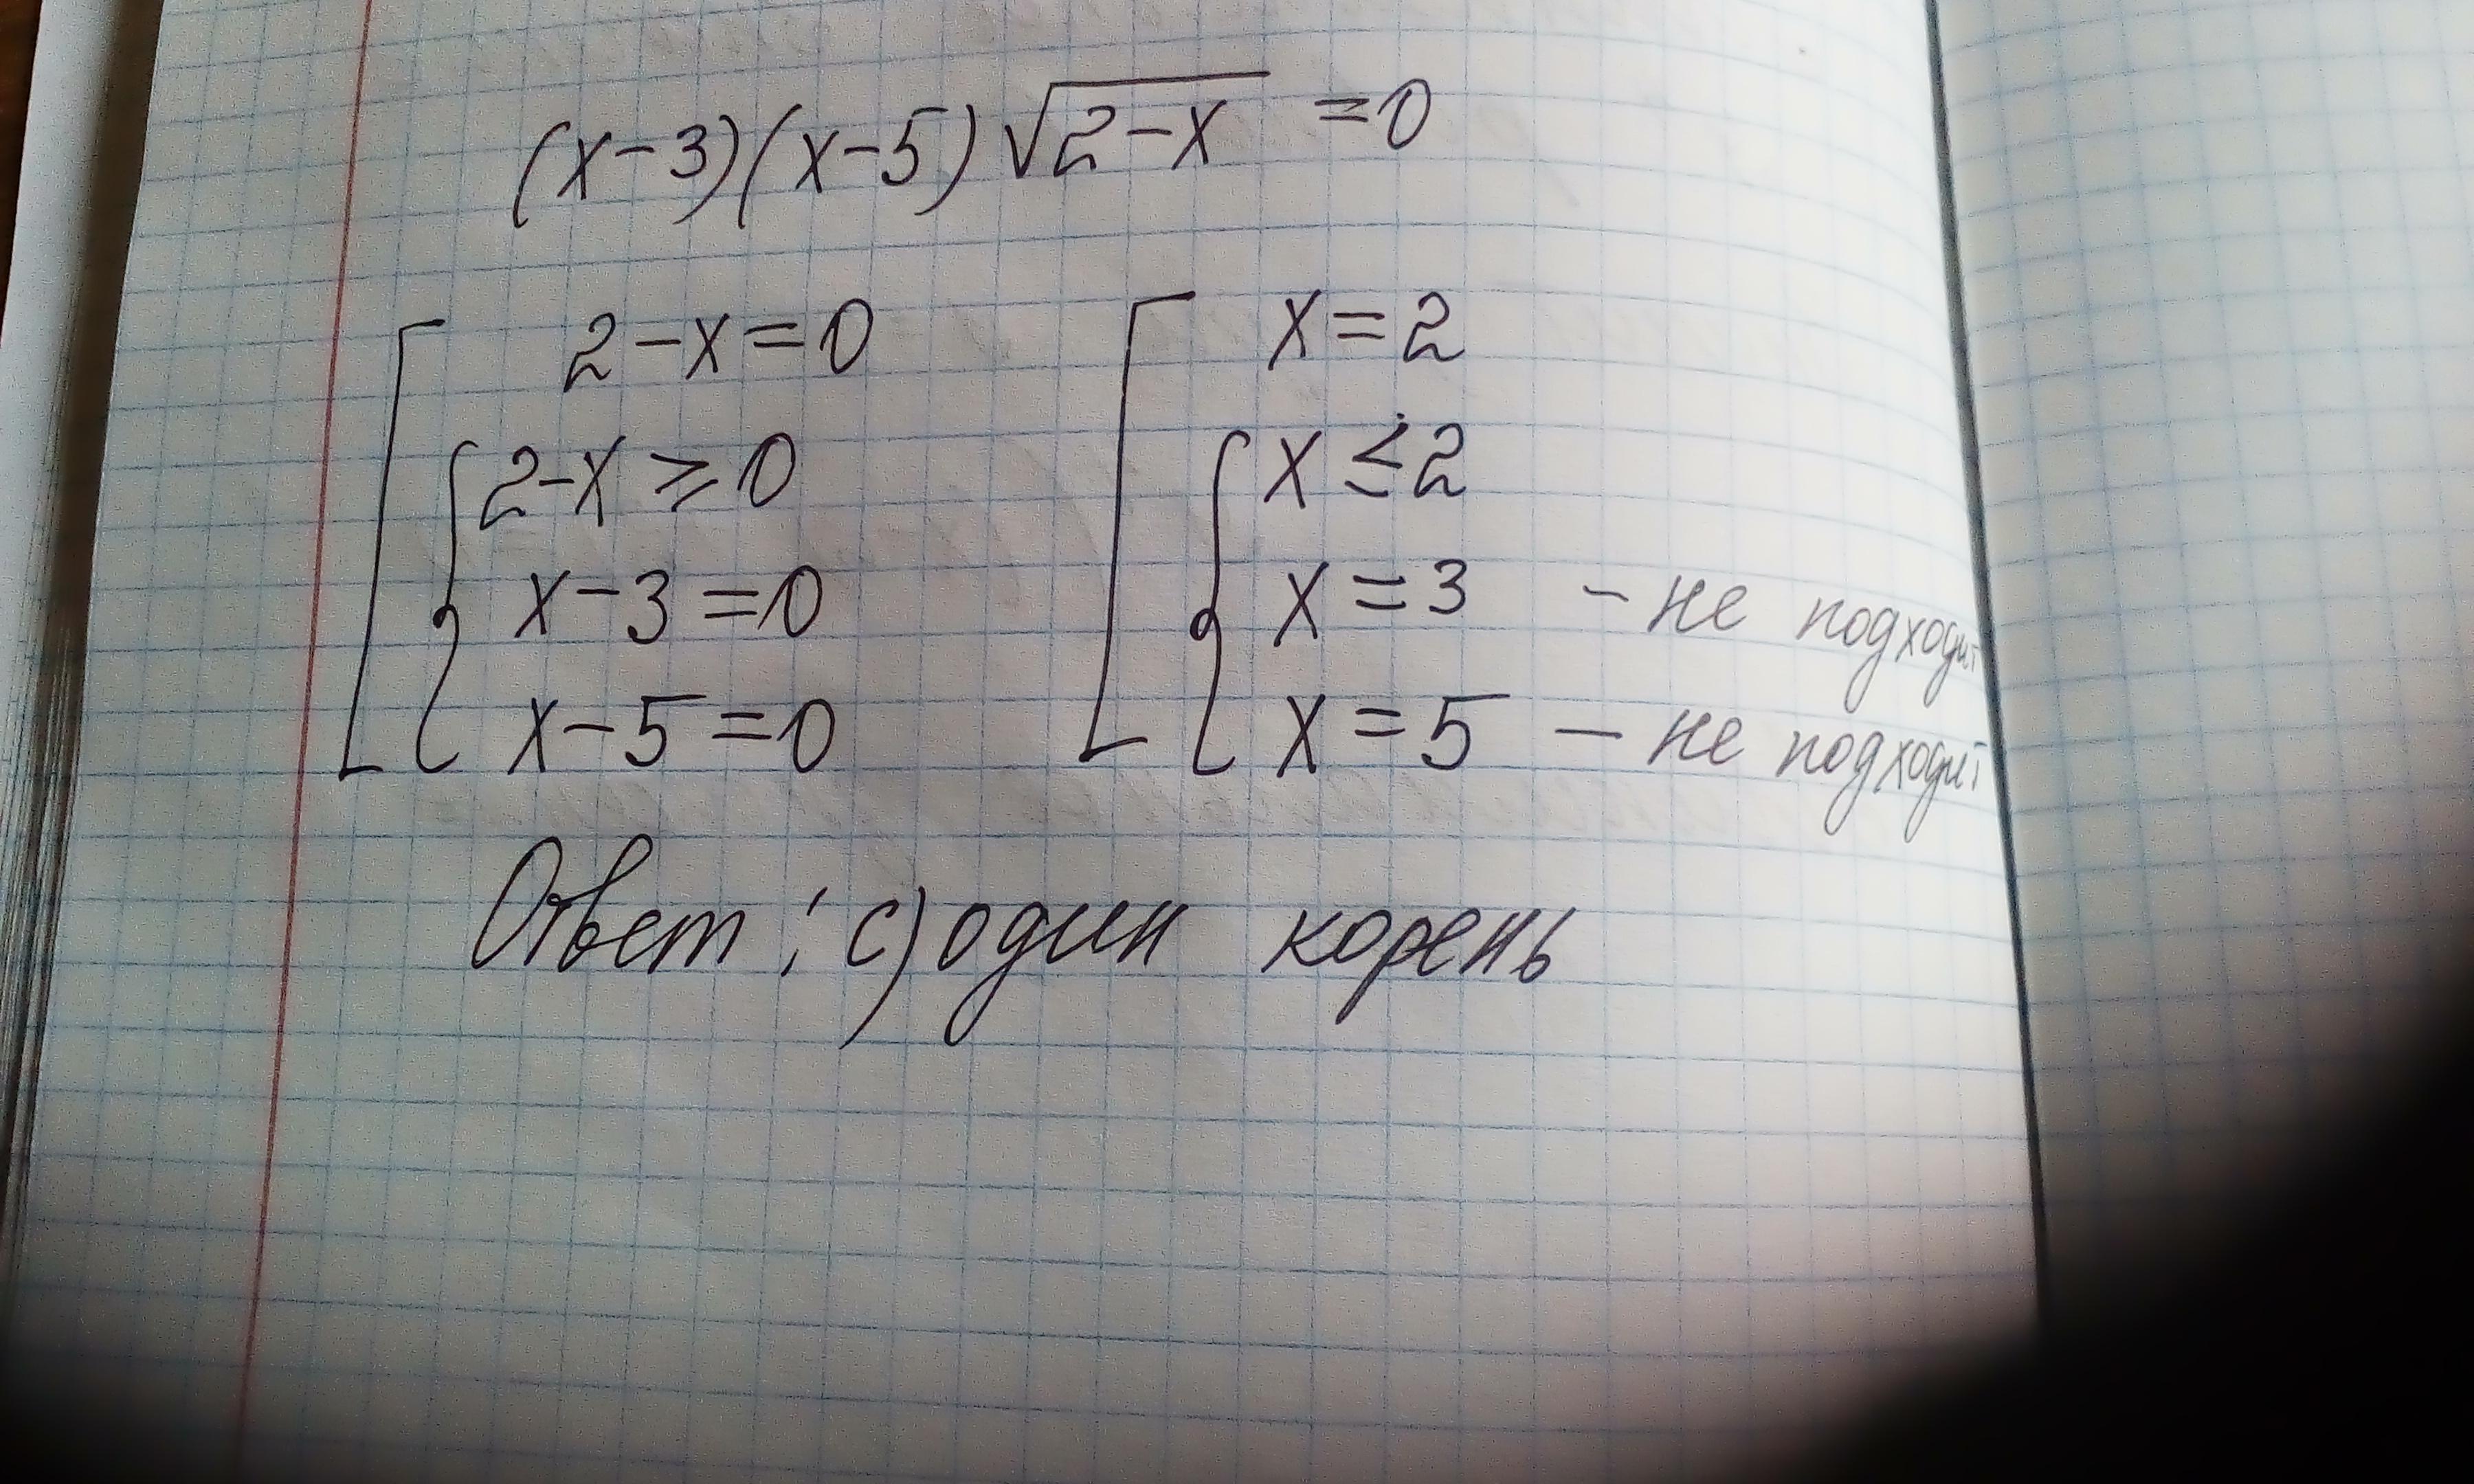 (x-3)(x-5)√2-x =0
2-x=0
2-x ≥ 0
x-3=0
x-5=0
x=2
x ≤ 2
x=3 - не подходит
x=5 - не подходит
Ответ: с) один корень